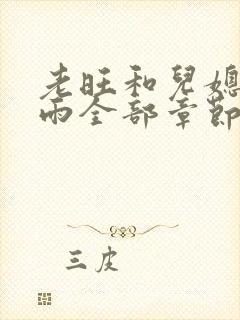 老旺和兒媳
雨全部章節
三皮